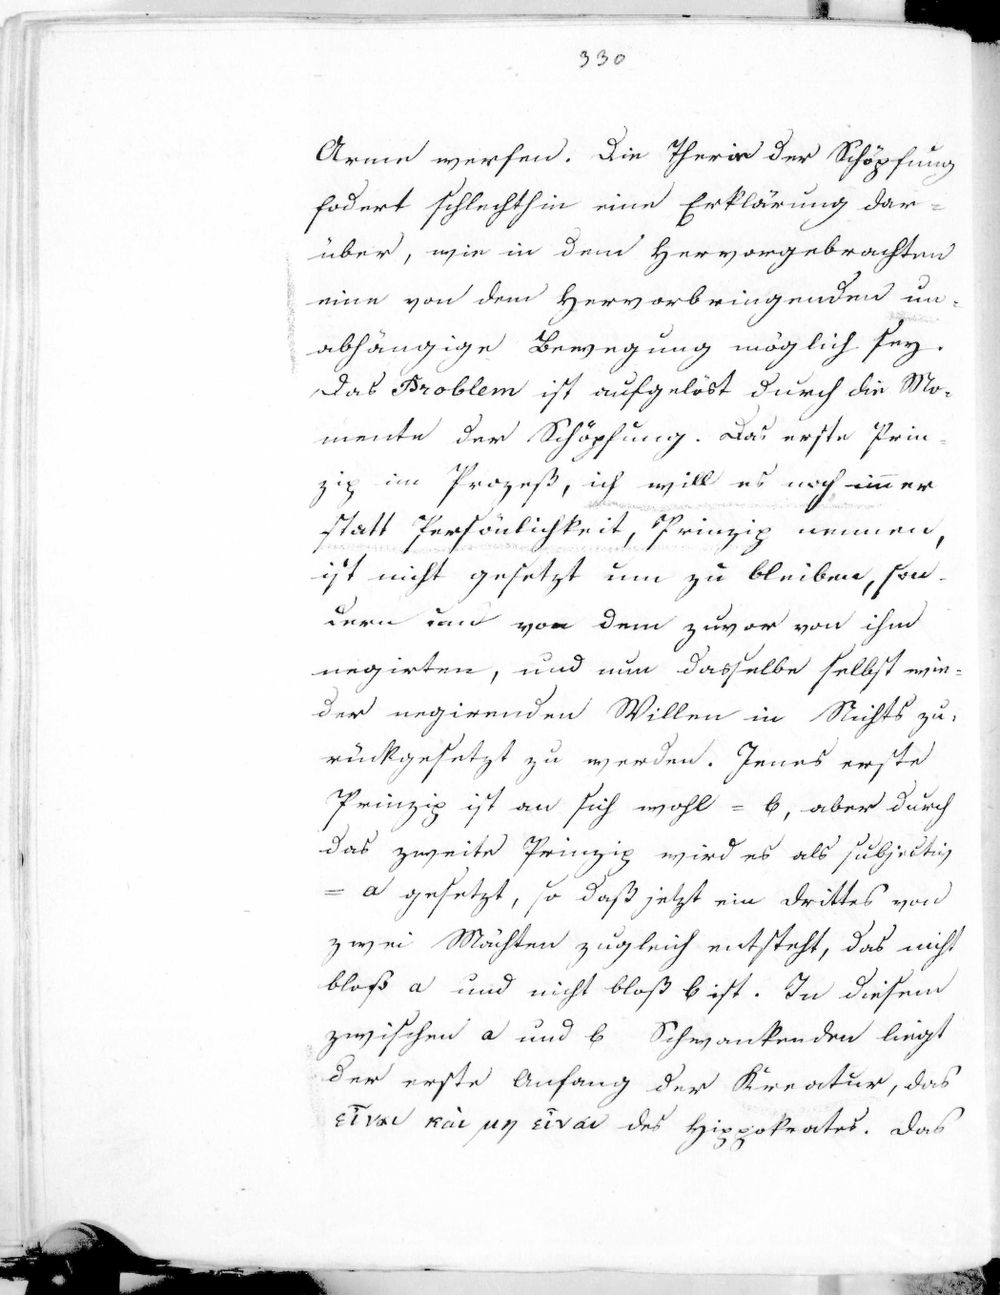 330
Arme werfen. Die Therie der Schöpfung
fodert schlechthin eine Erklärung dar=
über, wie in dem Hervorgebrachten
eine von dem Hervorbringenden un=
abhängige Bewegung möglich sey.
Das Problem ist aufgelöst durch die Mo=
mente der Schöpfung. Das erste Prin=
zip im Prozeß, ich will es noch immer
statt Persönlichkeit, Prinzip nennen,
ist nicht gesetzt um zu bleiben, son=
dern um von dem zuvor von ihm
negirten, und nun dasselbe selbst wie=
der negirenden Willen in Nichts zu=
rückgesetzt zu werden. Jenes erste
Prinzip ist an sich wohl = b, aber durch
das zweite Prinzip wird es als subjectiv
= a gesetzt, so daß jetzt ein Drittes von
zwei Mächten zugleich entsteht, das nicht
bloß a und nicht bloß b ist. In diesem
zwischen a und b Schwankenden liegt
der erste Anfang der Kreatur, das
εἶναι καὶ μη εἶναι des Hippokrates. Das